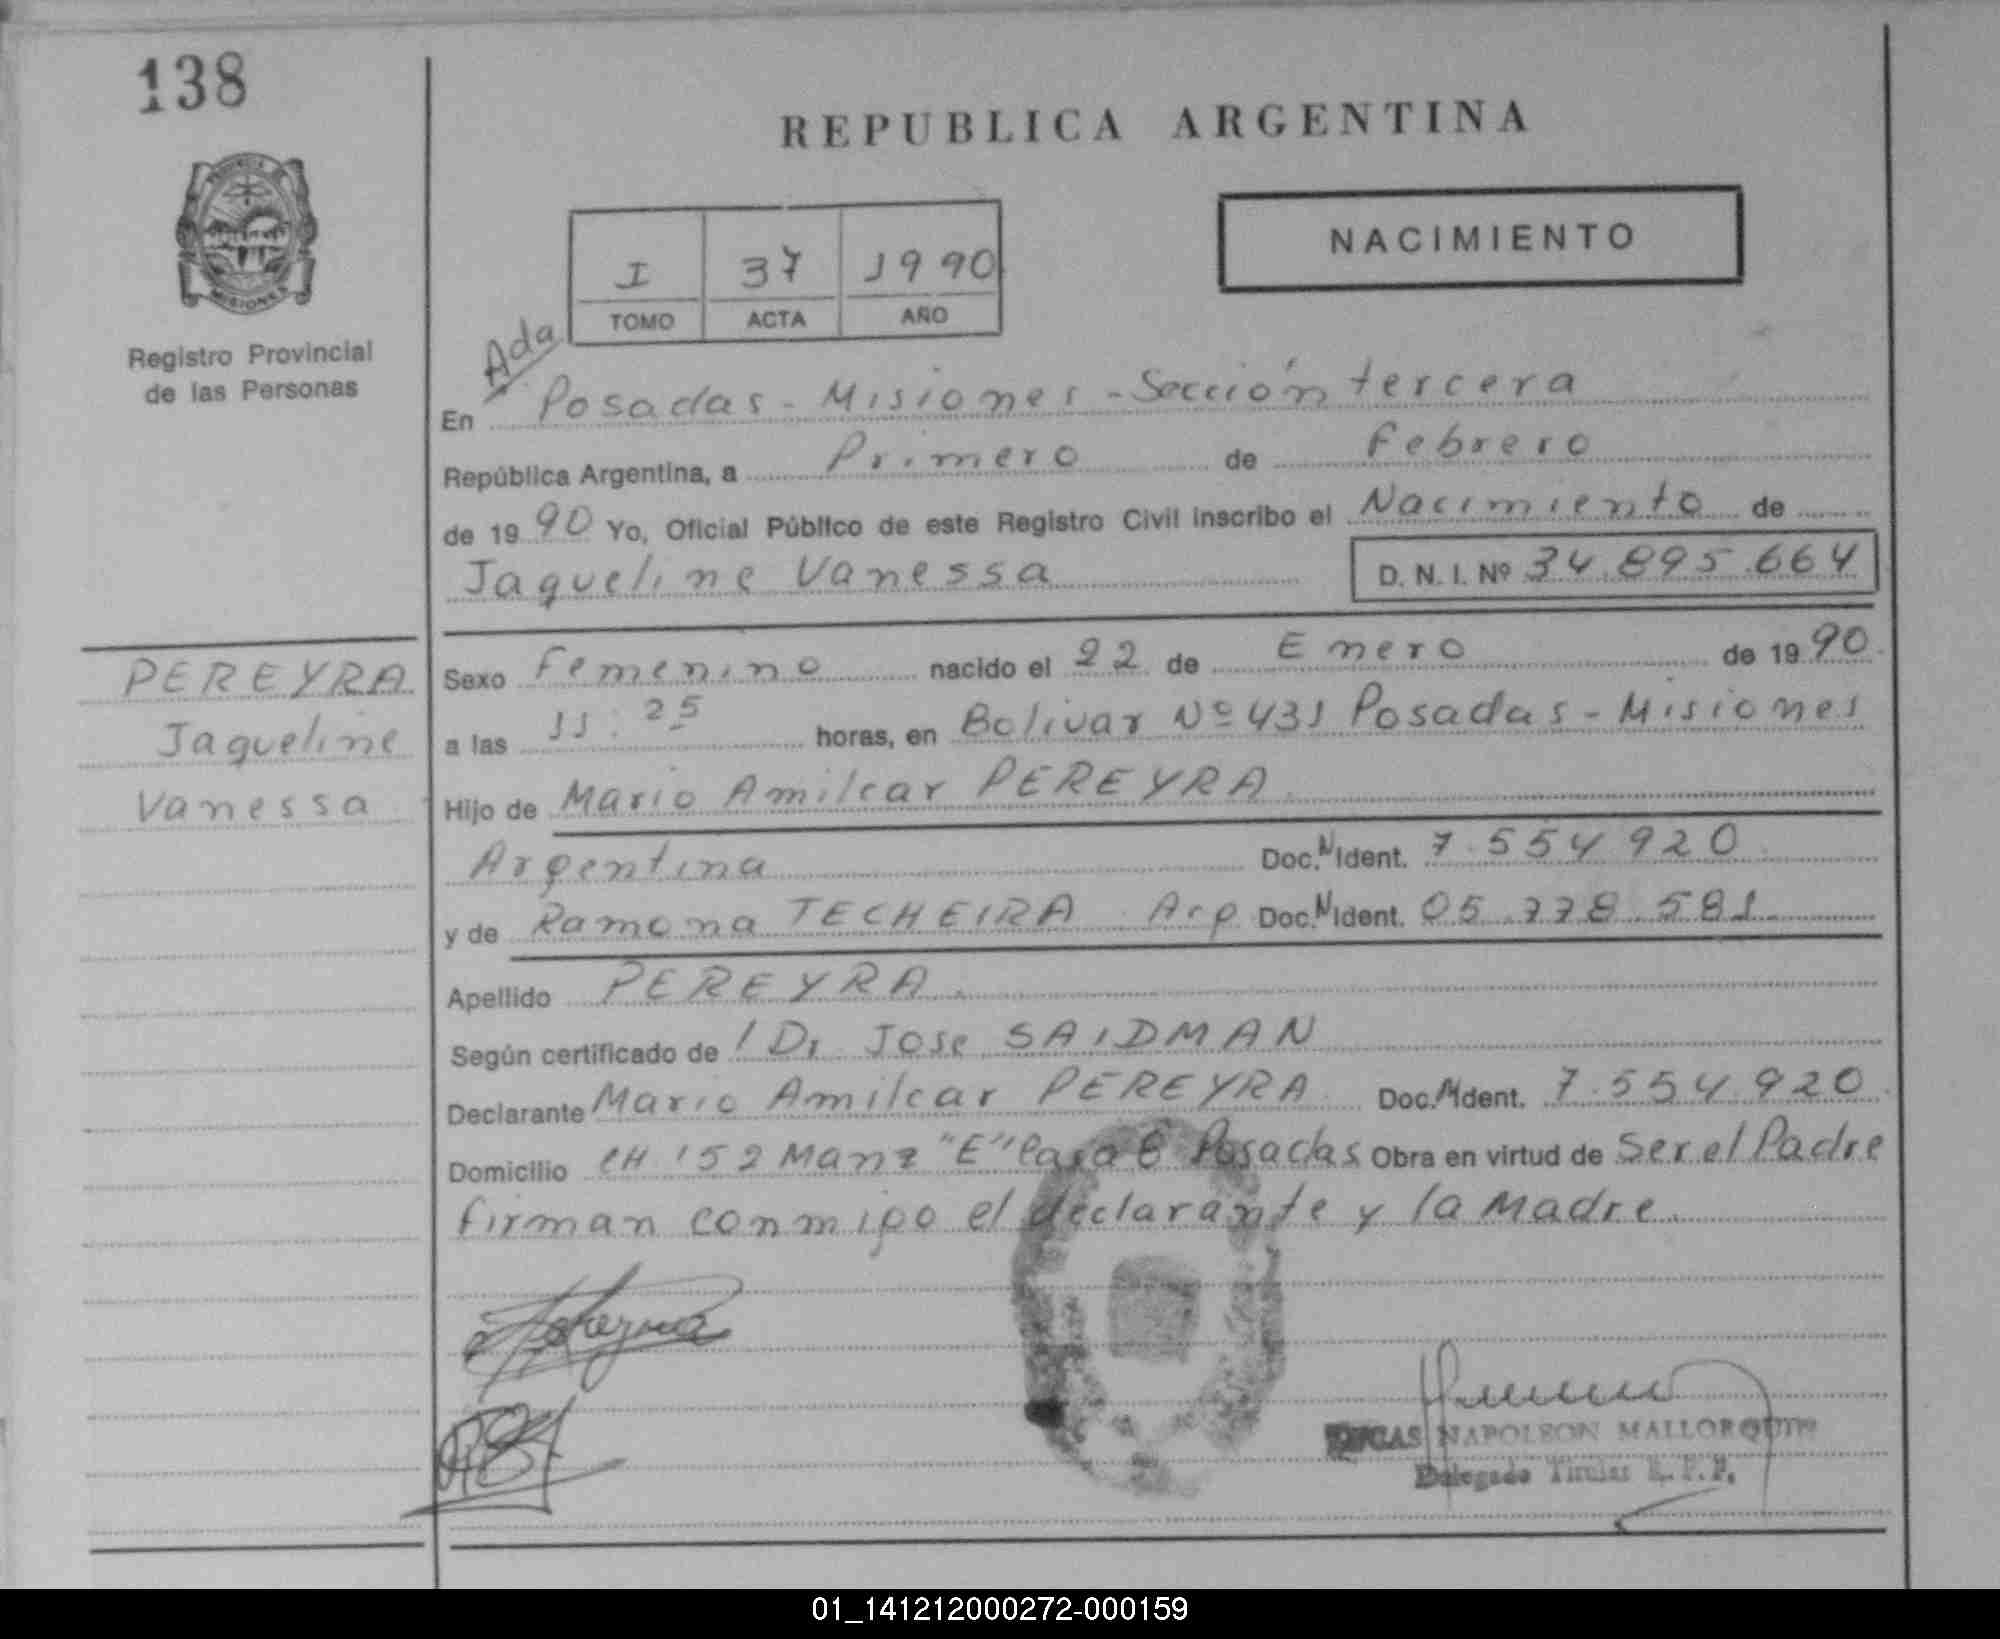 138
REPUBLICA ARGENTINA
NACIMIENTO
I 37 1990
TOMO ACTA AÑO
MISIONES
Registro Provincial
de las Personas
Ada
En Posadas - Misiones - Sección tercera
República Argentina, a Primero de Febrero
de 1990 Yo, Oficial Público de este Registro Civil inscribo el Nacimiento de
Jaqueline Vanessa D. N. I. Nº 34.895.664
PEREYRA
Jaqueline
Vanessa
Sexo Femenino nacido el 22 de Enero de 1990
a las 11:25 horas, en Bolivar Nº 431 Posadas - Misiones
Hijo de Mario Amilcar PEREYRA
Argentina Doc. N Ident. 7.554.920
y de Ramona TECHEIRA Arg Doc. N Ident. 05.778.581
Apellido PEREYRA.
Según certificado de Dr Jose SAIDMAN
Declarante Mario Amilcar PEREYRA Doc. Ident. 7.554.920
Domicilio CH 152 Manz "E" Casa 6 Posadas Obra en virtud de Ser el Padre
firman conmigo el declarante y la Madre.
NAPOLEON MALLORQUIN
Delegado Titular R. P. P.
01_141212000272-000159